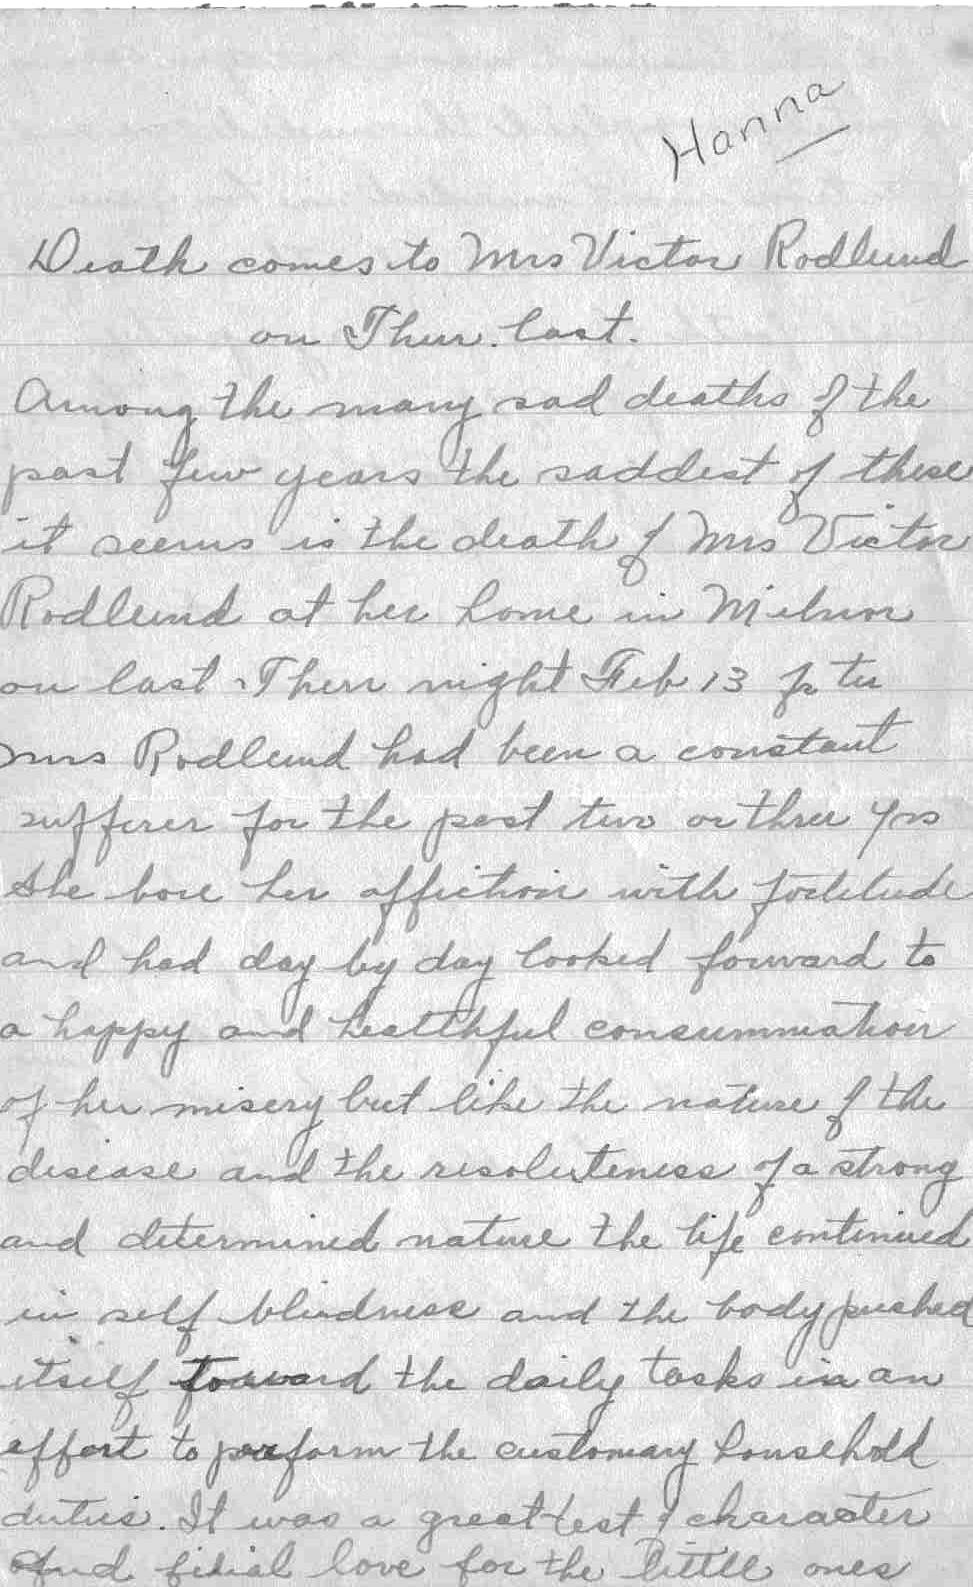 Hanna
Death comes to Mrs Victor Rodlund
on Thur. last.
Among the many sad deaths of the
past few years the saddest of these
it seems is the death of Mrs Victor
Rodlund at her home in Milnor
on last Thur night Feb 13
Mrs Rodlund had been a constant
sufferer for the past two or three yrs
She bore her affliction with fortitude
and had day by day looked forward to
a happy and healthful consummation
of her misery but like the nature of the
disease and the resoluteness of a strong
and determined nature the life continued
in self blindness and the body pushed
itself toward the daily tasks in an
effort to perform the customary household
duties. It was a great test of character
and filial love for the little ones